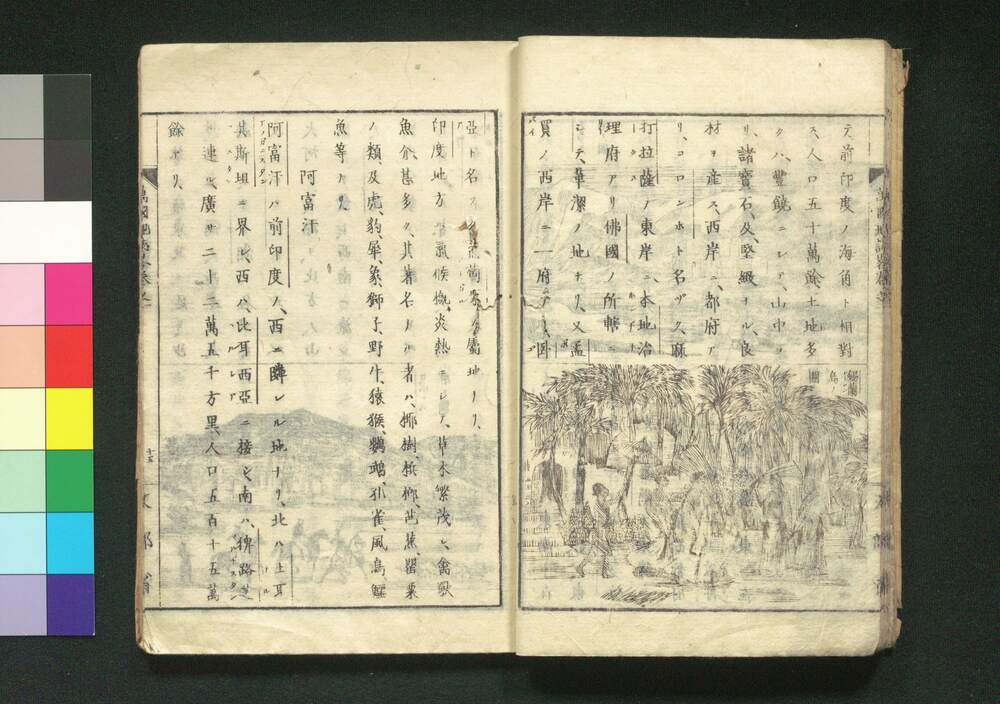 テ前印度ノ海角ト相對
ス、人口五十萬餘、土地多
クハ豐饒ニシテ、山中ヨ
リ、諸寶石、及堅緻ナル、良
材ヲ産ス、西岸ニ、都府ア
リ、コロンホト名ヅク、麻
打拉薩ノ東岸ニ、本地治
理府アリ、佛國ノ所轄ニ
シテ、華潔ノ地ナリ、又孟
買ノ西岸ニ一府アリ、臥
錫蘭
島ノ
圖
亞ト名ス、葡萄牙ノ屬地ナリ、
印度地方ハ、氣候概、炎熱ニシテ、草木繁茂シ、禽獸
魚介甚多ク、其著名ナル者ハ、椰樹、檳榔、芭蕉、罌粟
ノ類、及虎、豹、犀、象、獅子、野牛、猿猴、鸚鵡、孔雀、風鳥、鱷
魚等ナリ、
阿富汗
阿富汗ハ前印度ノ、西ニ隣レル地ナリ、北ハ土耳
其斯坦ニ界シ、西ハ、比耳西亞ニ接シ、南ハ、俾路芝
ニ連ル、廣サ二十二萬五千方里、人口五百十五萬
餘アリ、
十五
文部省